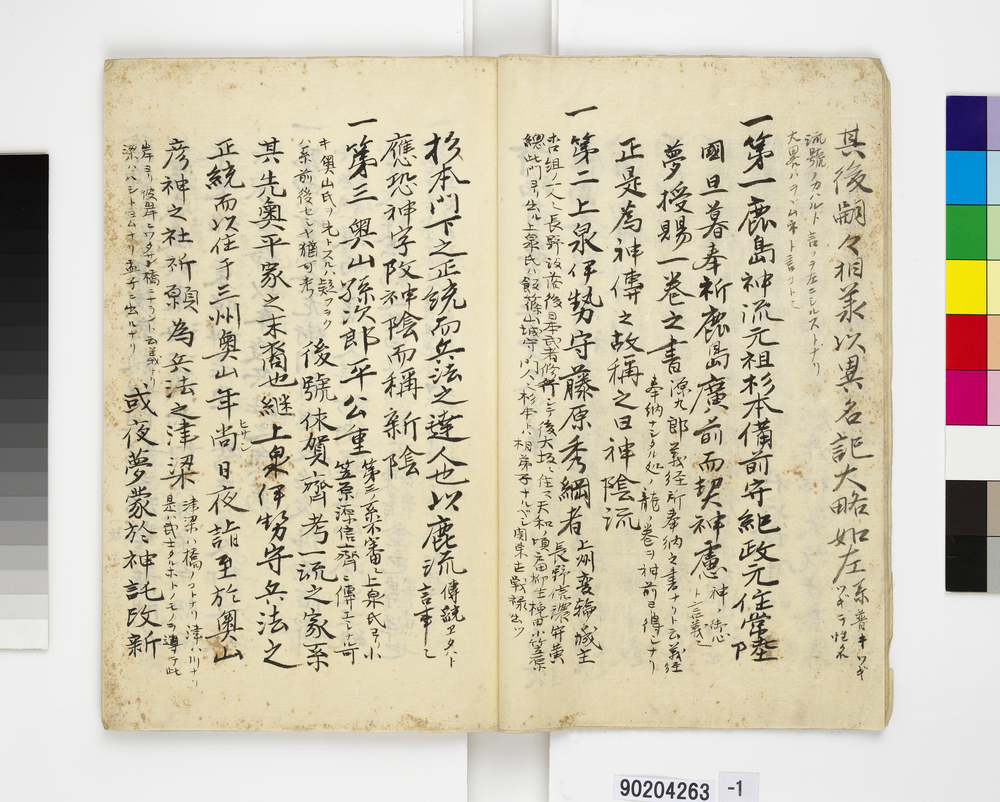 其後嗣々相羕以異名記大略如左系普キツギ
ツギテ性名
流號ノカハルト言フヲ左ニシルストナリ
大畧ハヲヽムネト言コト也
一第一鹿島神流元祖杉本備前守紀政元住常陸
國旦暮奉祈鹿島廣前而契神慮神ノ御心
ト云義也
夢授賜一巻之書源九郎義経所奉納之書ナリト云義経
奉納ナシタル処ノ龍ノ巻ヲ神前ヨリ傳ナリ
正是為神傳之故稱之曰神陰流
一第二上泉伊勢守藤原秀綱者上州変輪城主
長野信濃守黄
杏組ノ人也長野没落後日本武者修行シテ後大坂ニ住ス天和ノ頃庿柳生梶田小笠原
總此門ヨリ出ル上泉氏ハ飯篠山城守門人也杉本トハ相弟子ナルベシ関東古戦録出ツ
杉本門下之正統而兵法之達人也以鹿流傳統ヱタト
言事也
應恐神字改神陰而稱新陰
一第三奥山孫次郎平公重第三ノ系不審也上泉氏ヨリ小
笠原源信齊ニ傳エシナル可
キ奥山氏ヲ先トスルハ疑ヲヲク
ハ系前後セシヤ猶可考
後號休賀齊考一流之家系
其先奥平家之末裔也継上泉伊勢守兵法之
正統而以住于三州奥山年尚日夜詣至於奥山
ヒサシ
彦神之社祈願為兵法之津梁津梁ハ橋ノコトナリ津ハ川ナリ
是ハ武士タルホトノモノヲ導テ此
岸ヨリ彼岸ニワタサン橋ニナラント云義ナリ
梁ハハシトヨムナリ孟子ニ出ルナリ
或夜夢蒙於神託改新
90204263 -1